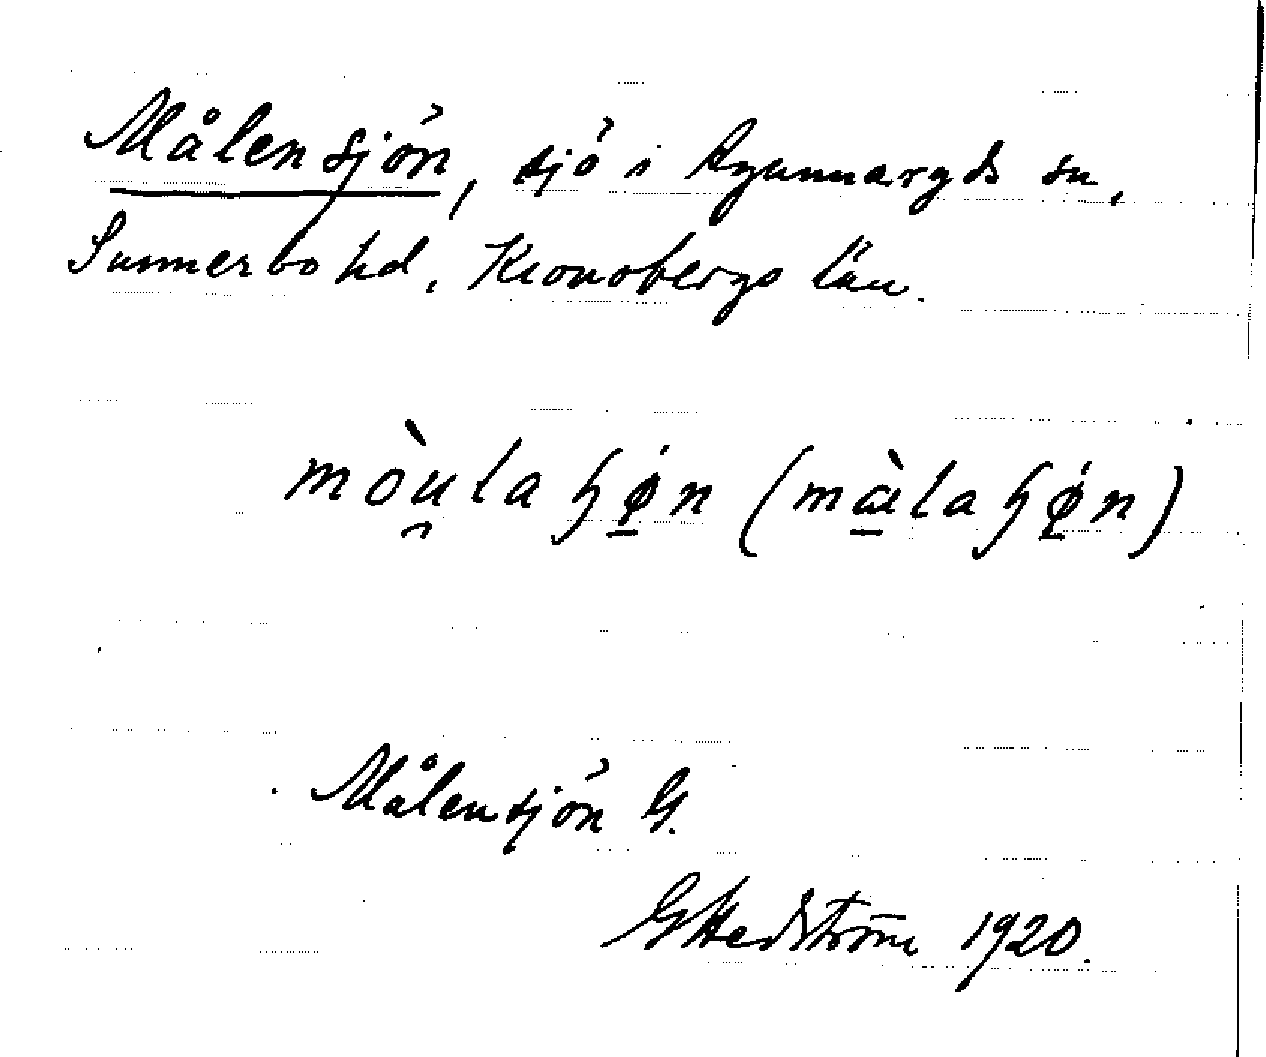 Målensjön, sjö i Agunnaryds sn,
Sunnerbo hd, Kronobergs län.
Målensjön G.
GHedström 1920.